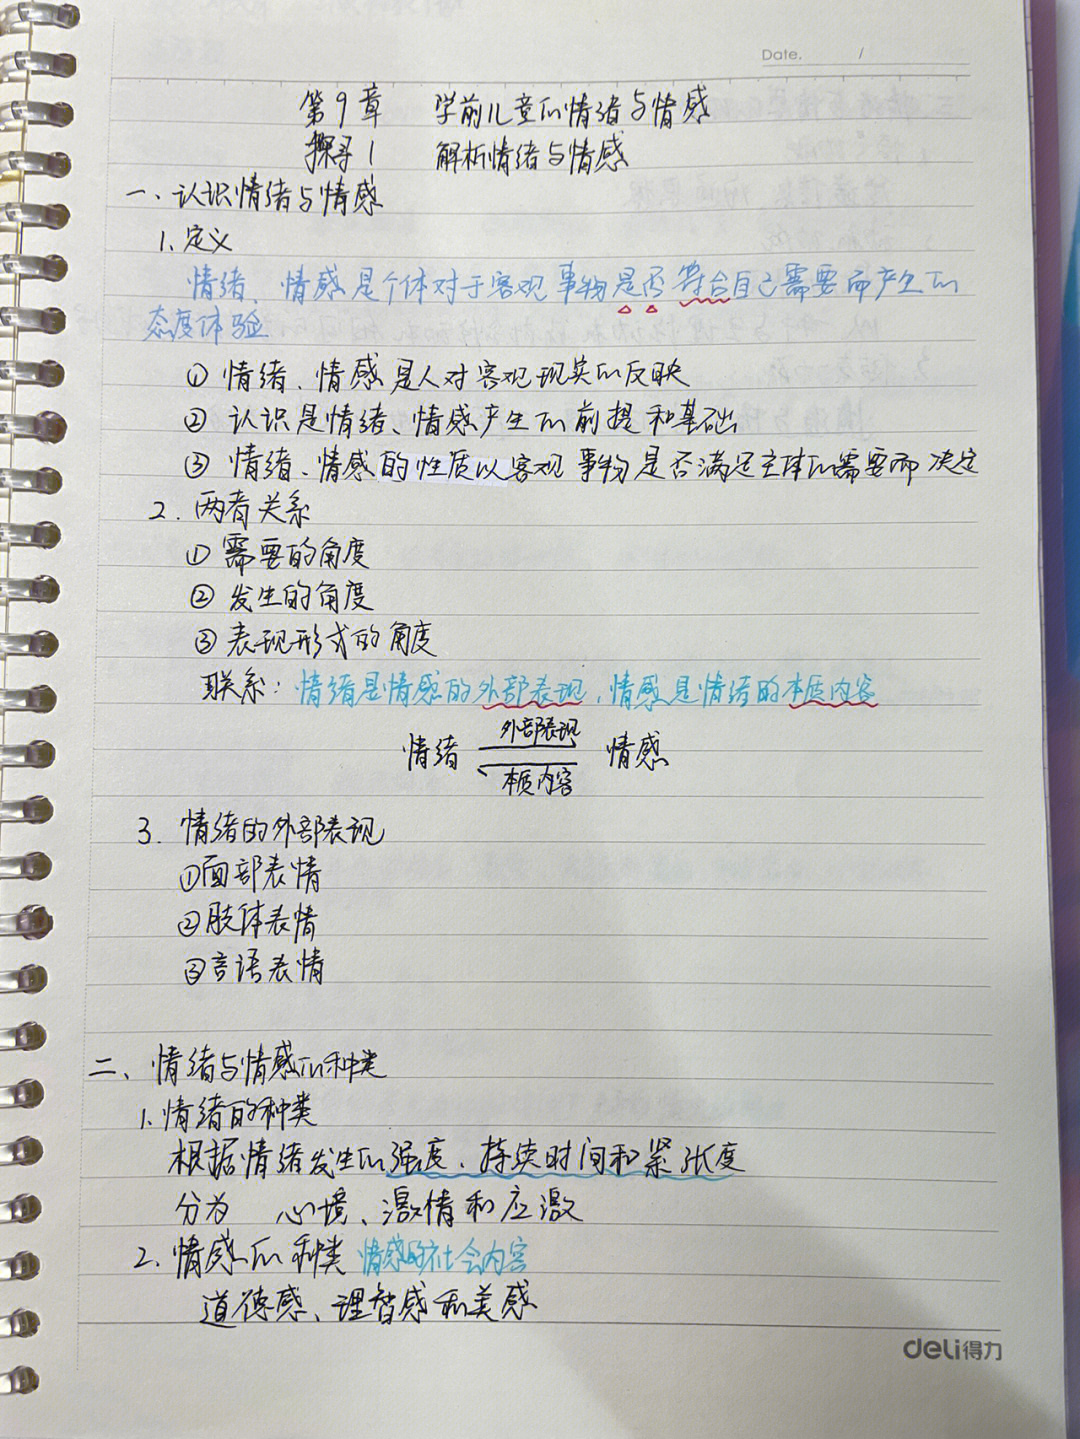 Date. /
第9章 学前儿童的情绪与情感
探寻1 解析情绪与情感
一、认识情绪与情感
1、定义
情绪、情感是个体对于客观事物是否符合自己需要而产生的
态度体验
① 情绪、情感是人对客观现实的反映
② 认识是情绪、情感产生的前提和基础
③ 情绪、情感的性质以客观事物是否满足主体的需要而决定
2. 两者关系
① 需要的角度
② 发生的角度
③ 表现形式的角度
联系：情绪是情感的外部表现，情感是情绪的本质内容
外部表现
情绪 情感
本质内容
3. 情绪的外部表现
①面部表情
②肢体表情
③言语表情
二、情绪与情感的种类
1、情绪的种类
根据情绪发生的强度、持续时间和紧张度
分为 心境、激情和应激
2、情感的种类 情感的社会内容
道德感、理智感和美感
deli得力